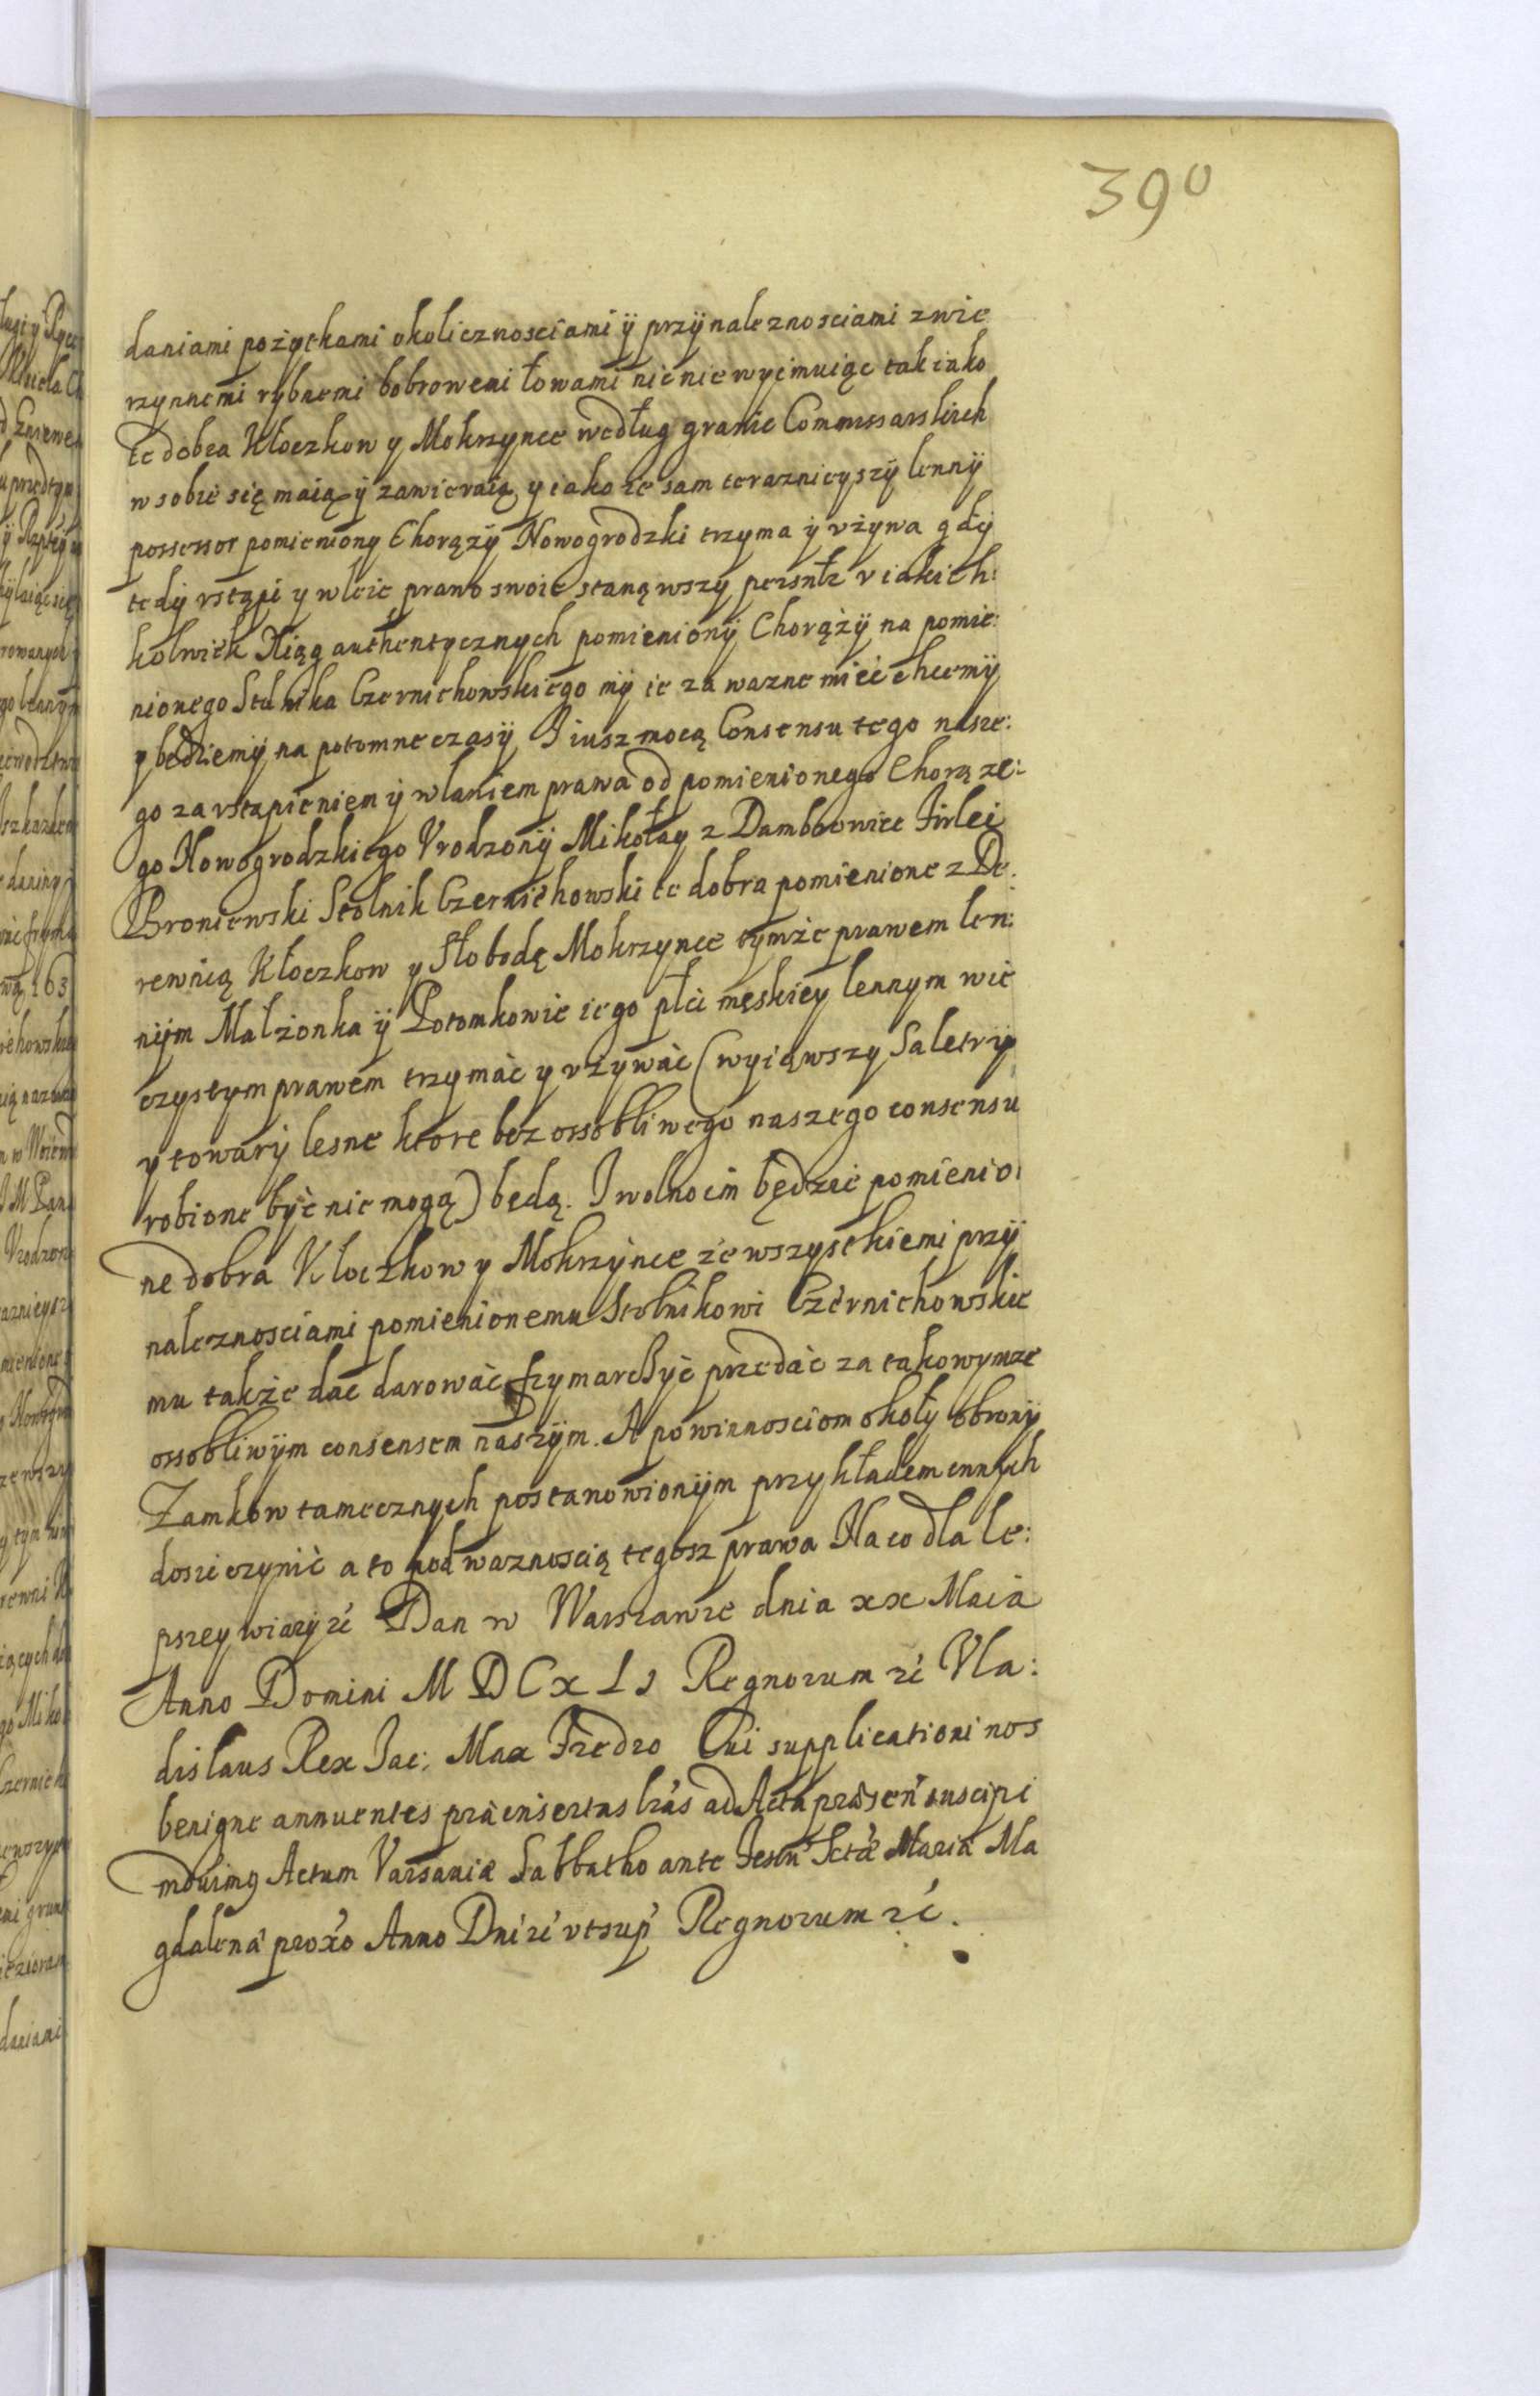 390
daniami pożytkami okolicznosciami ÿ przÿnaleznosciami zwie
rzynnemi rybnemi bobrowemi łowami nic nie wyimuiąc tak iako
te dobra Kłoczkow y Mokrzynce według granic Commissarskich
w sobie się maią ÿ zawieraią y iako ie sam teraznieyszÿ lennÿ
possessor pomieniony Chorązÿ Nowogrodzki trzyma ÿ vżywa gdÿ
tedÿ vstąpi y wleie prawo swoie stanąwszy persntr v iakich:
kolwiek Xiąg authentycznych pomienionÿ Chorążÿ na pomie:
nionego Stolnika Czernichowskiego mÿ ie za wazne mieć chcemÿ
y będziemÿ na potomne czasÿ I iusz mocą Consensu tego nasze:
go za vstąpieniem ÿ wlaniem prawa od pomienionego Chorąze:
go Nowogrodzkiego Vrodzonÿ Mikołay z Dambrowice Firlei
Broniewski Stolnik Czernichowski te dobra pomienione z De:
rewnią Kłoczkow y Słobodę Mokrzynce tymże prawem len:
nÿm Małżonka ÿ Potomkowie iego płci męskiey lennym wie
czystym prawem trzymać y vżywać (wyiąwszy Saletrÿ
y towarÿ lesne ktore bez ossobliwego naszego consensu
robione być nie mogą) będą. I wolno im będzie pomienio:
ne dobra Kłoczkow y Mokrzÿnce ze wszystkiemi przÿ
naleznosciami pomienionemu Stolnikowi Czernichowskie
mu także dać darować frymarczyć przedać za takowymze
ossobliwÿm consensem naszÿm. A powinnosciom okoły obronÿ
Zamkow tamecznych postanowionÿm przykładem innÿch
dosić czynić a to pod waznoscią tegosz prawa Na co dla le:
pszey wiarÿ rć Dan w Warszawie dnia xx Maia
Anno Domini M D C x L J Regnorum rć Vla:
dislaus Rex Jac: Max Fredro Cui supplicationi nos
benigne annuentes præinsertas lrás ad Acta præsen̄ suscipi
mduimg Actum Varsaviæ Sabbatho ante Festū Sctæ Mariæ Ma
gdalenæ proxo Anno Dni rć vtsup Regnorum rć.